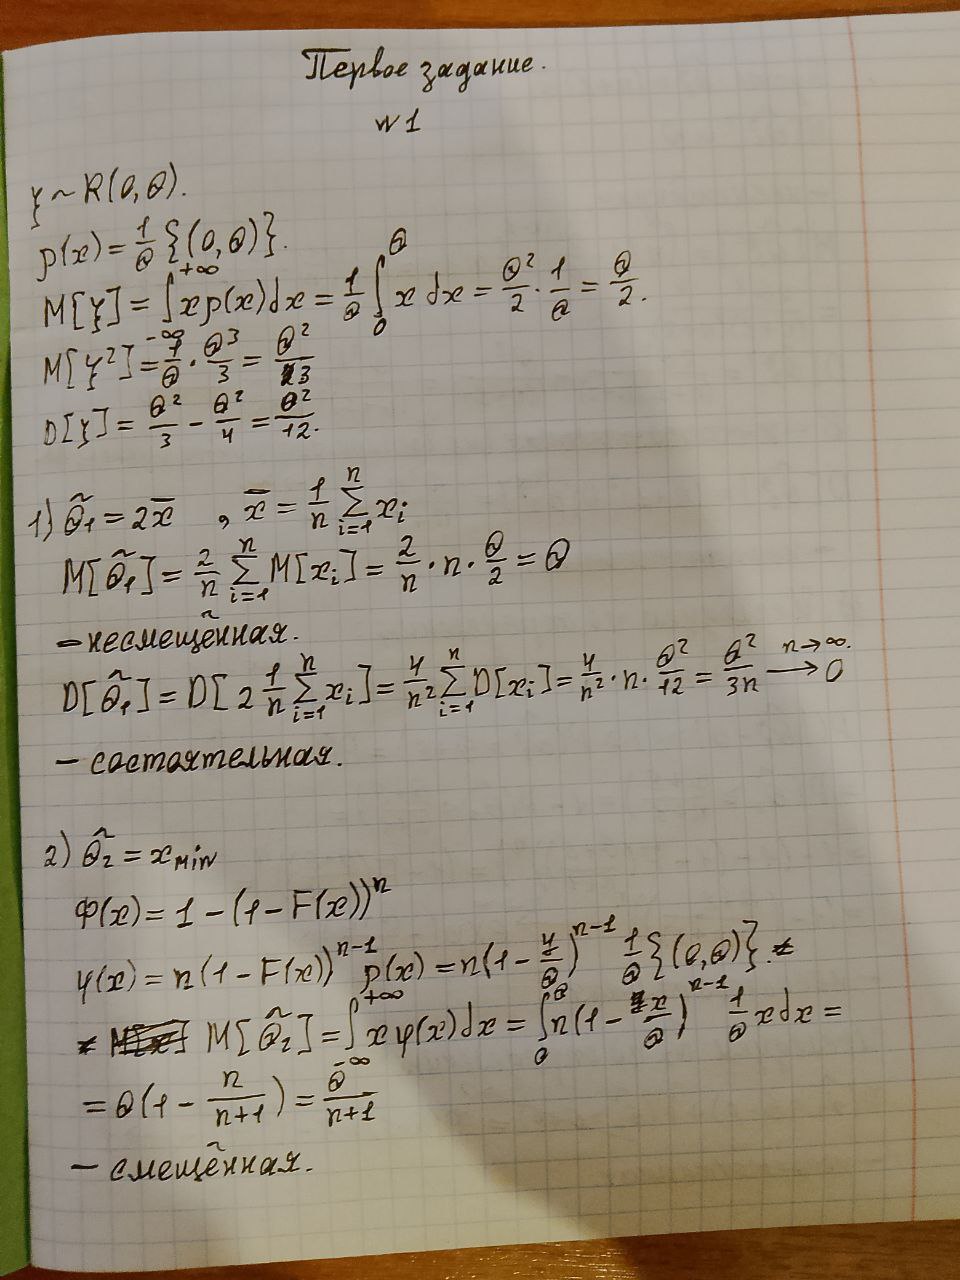 Первое задание.
№1
ξ ~ R(0, θ).
p(x) = 1/θ {(0, θ)}.
M[ξ] = ∫_{-∞}^{+∞} x p(x) dx = 1/θ ∫_0^θ x dx = θ²/2 · 1/θ = θ/2.
M[ξ²] = 1/θ · θ³/3 = θ²/3
D[ξ] = θ²/3 - θ²/4 = θ²/12.
1) θ̃₁ = 2x̄ , x̄ = 1/n ∑_{i=1}^n x_i
M[θ̃₁] = 2/n ∑_{i=1}^n M[x_i] = 2/n · n · θ/2 = θ
– несмещённая.
D[θ̃₁] = D[2 1/n ∑_{i=1}^n x_i] = 4/n² ∑_{i=1}^n D[x_i] = 4/n² · n · θ²/12 = θ²/3n → 0 n→∞.
– состоятельная.
2) θ̃₂ = x_min
Φ(x) = 1 - (1 - F(x))^n
φ(x) = n(1 - F(x))^{n-1} p(x) = n(1 - y/θ)^{n-1} 1/θ {(0, θ)}.
M[θ̃₂] = ∫_{-∞}^{+∞} x φ(x) dx = ∫_0^θ n(1 - x/θ)^{n-1} 1/θ x dx =
= θ(1 - n/(n+1)) = θ/(n+1)
– смещённая.